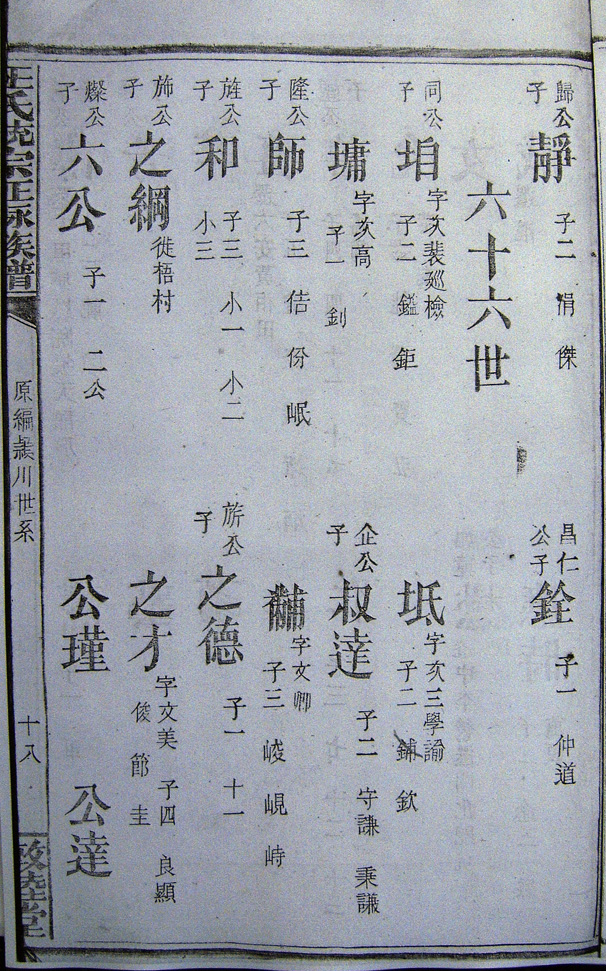 歸公子 靜 子二 涓 傑
昌仁公子 銓 子一 仲道
六十六世
司公子 垍 字亥裴廵檢 子二 鑑 鉅
坻 字亥三學諭 子二 鋪 欽
墉 字亥高 子一 釗
企公子 叔達 子二 守謙 秉謙
隆公子 師 子三 佶 份 岷
黼 字文卿 子三 崚 峴 峙
旌公子 和 子三 小一 小二 小三
旂公子 之德 子一 十一
斾公子 之綱 徙梧村
之才 字文美 子四 良顯 俊 節 圭
燦公子 六公 子一 二公
公瑾 公達
汪氏統宗正脉族譜
原編 川世系
十八
敦睦堂